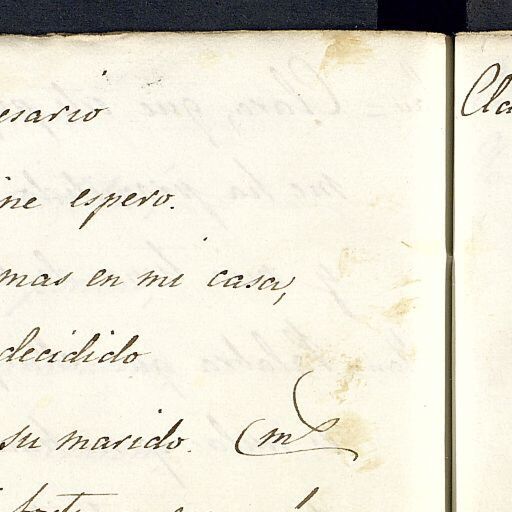 esario
ine espero.
mas en mi casa,
decidido
su marido. (m
Cla